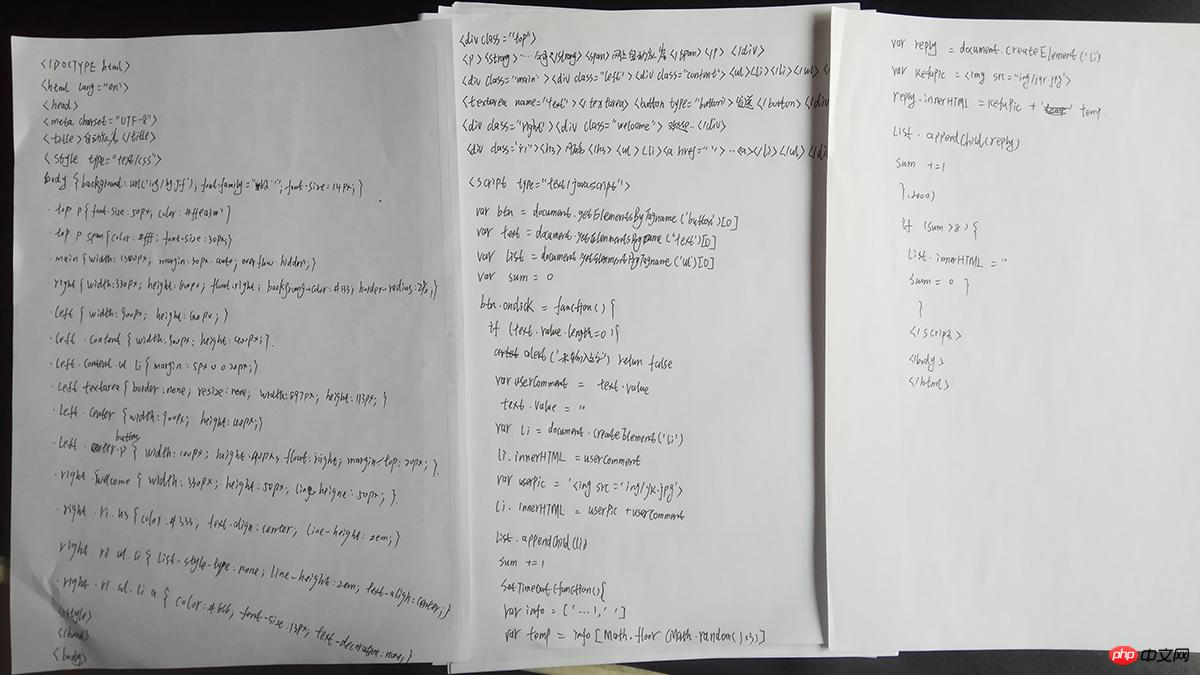 <!DOCTYPE html>
<html lang="en">
<head>
<meta charset="UTF-8">
<title>自动 </title>
<style type="text/css">
body {background: url('img/bj.gif'); font-family=" "; font-size:14px;}
.top p{font-size:50px; color:#ffea00}
.top p span{color:#fff; font-size:30px;}
.main {width:1300px; margin:30px auto; overflow:hidden;}
right {width:330px; height:600px; float:right; background-color:#333; border-radius: ;}
.left { width:900px; height:600px;}
.left .content { width:900px; height:400px;}
.left.content.ul li{margin: 5px 0 0 20px;}
.left textarea{border:none; resize:none; width:897px; height:113px;}
.left.center {width:900px; height:400px;}
.left. button { width:100px; height:40px; float:right; margin-top:20px;}
.right .welcome { width:330px; height:50px; line heigne:50px;}
.right.ri.h3 {color:#333; text-align:center; line-height:2em;}
right.ri ul.li { list-style-type:none; line-height:2em; text-align=center;}
.right.ri ul.li a { color:#666; font-size:13px; text-decoration:none;}
<style>
</head>
<body>
<div class="top">
<p><strong> </strong><span> 自动 </span></p></div>
<div class="main"><div class="left"><div class="content"><ul><li></li></ul>
<textarea name="text"></textarea><button type="button">发送</button></div
<div class="right"><div class="welcome"> </div>
<div class="ri"><h3> </h3><ul><li><a href=" ">...<a></li></ul></di
<script type="text/javascript">
var btn = document.getElementsByTagname('button')[0]
var text = document. ("text")[0]
var list = document. ('ul')[0]
var sum = 0
btn.onclick = function() {
if (text.value.length=0){
alert(' ') return false
var userComment = text.value
text.value = ''
var Li = document.createElement('Li')
Li.innerHTML = userComment
var userPic = '<img src='img/yk.jpg'>
Li.innerHTML = userPic +userComment
List.appendChild(li)
sum +=1
SetTimeout(function(){
var info = ['...',' ']
var temp = info[Math.floor(Math.random()*3)]
var reply = document.createElement('Li)
var Kefupic = <img src="img/ .jpg">
reply.innerHTML = Kefupic + temp.
List.appendChild(reply)
sum +=1
},2000)
if (sum>8){
List.innerHTML = ''
sum = 0 }
}
</script>
</body>
</html>
php 中文网